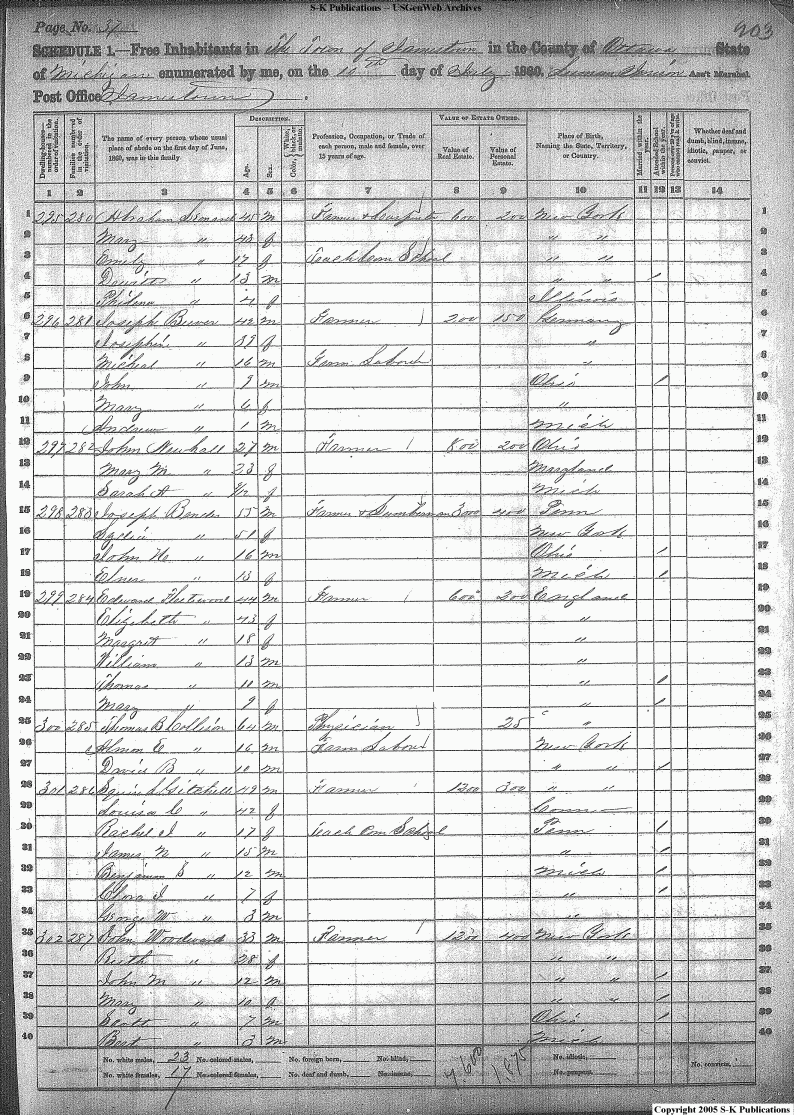 S-K Publications – USGenWeb Archives
Page No. 37
903
SCHEDULE 1.—Free Inhabitants in The Town of Jamestown in the County of Ottawa State
of Michigan enumerated by me, on the 10th day of July 1860. Ass't Marshal
Post Office Jamestown.
DESCRIPTION. VALUE OF ESTATE OWNED.
Dwelling-houses—numbered in the order of visitation. Families numbered in the order of visitation. The name of every person whose usual place of abode on the first day of June, 1860, was in this family. Age. Sex. Color, White, black, or mulatto. Profession, Occupation, or Trade of each person, male and female, over 15 years of age. Value of Real Estate. Value of Personal Estate. Place of Birth, Naming the State, Territory, or Country. Married within the year. Attended School within the year. Whether deaf and dumb, blind, insane, idiotic, pauper, or convict.
1 2 3 4 5 6 7 8 9 10 11 12 13 14
1 295 280 Abraham 45 m Farmer & 600 200 New York 1
2 Mary " 43 f " " 2
3 Emily " 17 f Teach Com School " " 3
4 " 13 m " " / 4
5 Philena " f Illinois 5
6 296 281 Joseph 42 m Farmer 200 150 Germany 6
7 Josephine " 39 f " 7
8 Micheal " 16 m Farm Labour " 8
9 John " 9 m Ohio / 9
10 Mary " 6 f " 10
11 Andrew " 1 m Mich 11
12 297 282 John Newhall 27 m Farmer 800 200 Ohio 12
13 Mary M. " 23 f Maryland 13
14 Sarah A " f Mich 14
15 298 283 Joseph 55 m Farmer & Lumberman 3000 400 Penn 15
16 " 51 f New York 16
17 John " 16 m Ohio / 17
18 " 13 f Mich / 18
19 299 284 Edward Fleetwood 44 m Farmer 600 200 England 19
20 Elizabeth " 43 f " 20
21 Margrit " 18 f " 21
22 William " 13 m " 22
23 Thomas " 10 m " / 23
24 Mary " 9 f " / 24
25 300 285 Thomas B Collison 64 m Physician 25 " 25
26 Almon C " 16 m Farm Labour New York 26
27 David B " 10 m " " / 27
28 301 286 49 m Farmer 1300 300 " " 28
29 Louisa C " 42 f 29
30 Rachel J " 17 f Teach Com School Penn / 30
31 James N " 15 m " / 31
32 Benjamin S " 12 m Mich / 32
33 Clora J " 7 f " / 33
34 George W " 3 m " 34
35 302 287 John Woodward 33 m Farmer 1200 400 New York 35
36 Ruth " 28 f " " 36
37 John M " 12 m " " / 37
38 Mary " 10 f " " / 38
39 Scott " 7 m Ohio / 39
40 " 3 m Mich 40
No. white males, 23 No. colored males, No. foreign born, No. blind, No. idiotic,
No. white females, 17 No. colored females, No. deaf and dumb, No. insane, No. paupers, No. convicts,
Copyright 2005 S-K Publications